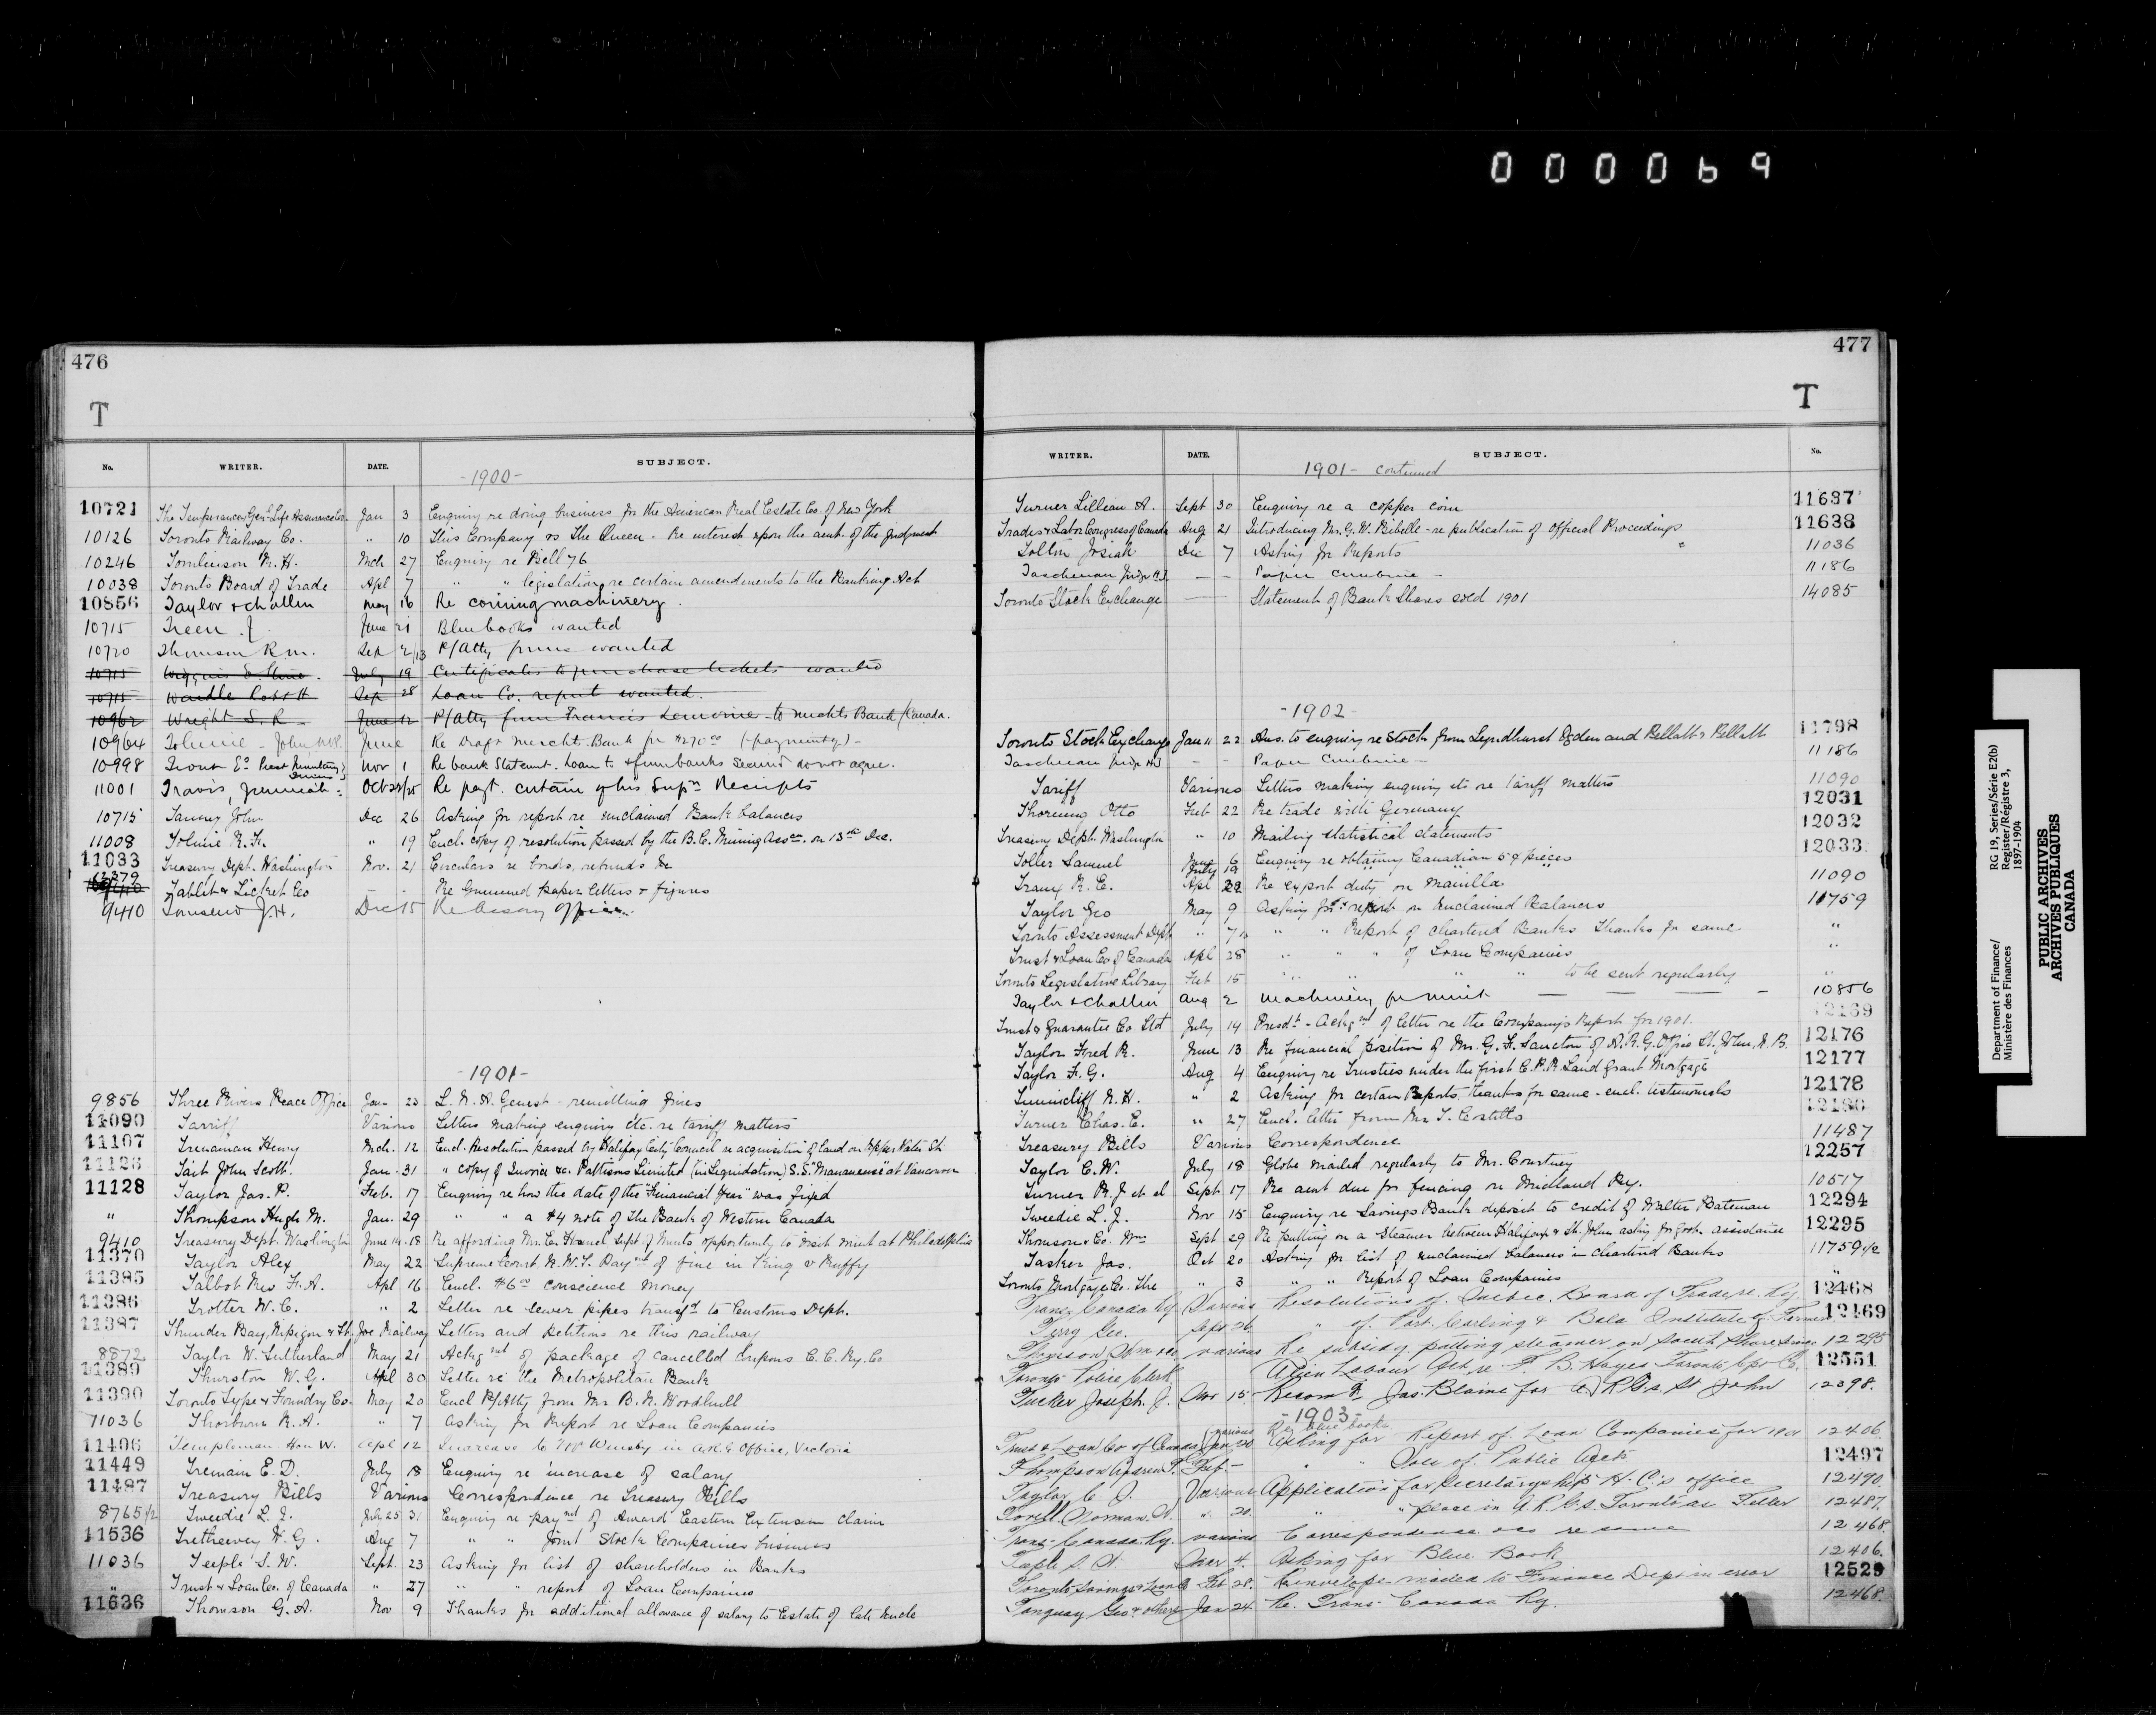 000069
476
T
No. WRITER. DATE. SUBJECT.
-1900-
10721 The Temperance & Genl. Life Assurance Co. Jan 3 Enquiry re doing business for the American Real Estate Co. of New York
10126 Toronto Railway Co. " 10 This Company vs The Queen - Re interest upon the amt. of the judgment
10246 Tomlinson R. H. Mch 27 Enquiry re Bill 76
10038 Toronto Board of Trade Apl 7 " " legislation re certain amendments to the Banking Act
10856 Taylor & Challen May 16 Re coining machinery
10715 Treen J. June 21 Blue books wanted
10720 Thomson R. M. Sep 2/13 P/Atty forms wanted
10715 July 19 Certificates to purchase tickets wanted
10715 Wardle Robt H Sep 28 Loan Co. report wanted.
10962 Wright S. R June 12 P/Atty from Francis Lemoine to Mchts Bank/Canada.
10964 Tolmie - John M.P. June Re Draft Merchts Bank for $270 00 (-payment of) -
10998 Trout Ed Nov 1 Re bank Statemt. Loan to & from banks Secured do not agree.
11001 Travis, Jeremiah - Oct 23/25 Re payt. certain of his Supn Receipts
10715 Tanny John Dec 26 Asking for report re unclaimed Bank balances
11008 Tolmie R. H. " 19 Encl. copy of resolution passed by the B.C. Mining Assocn. on 13th Dec.
11033 Treasury Dept. Washington Nov. 21 Circulars re bonds, refunds &c
12379 Tablet & Ticket Co - - Re Gummed paper letters & figures
9410 Townsend J. H. Dec 15 Re Assay Office.
-1901-
9856 Three Rivers Peace Office Jan 23 L. N. A. Genest - remitting fines
11090 Tariff Various Letters making enquiry etc. re tariff matters
11107 Trenaman Henry Mch. 12 Encl. Resolution passed by Halifax City Council re acquisition of land on Upper Water St
11126 Tait John Scott Jan. 31 " copy of Invoice &c. Pattisons Limited (in Liquidation) S.S. "Manauense" at Vancouver
11128 Taylor Jas. P. Feb. 17 Enquiry re how the date of the "Financial Year" was fixed
" Thompson Hugh M. Jan. 29 " " a $4 note of the Bank of Western Canada
9410 Treasury Dept. Washington June 14-18 Re affording Mr. E. Hamel Supt. of Mints opportunity to visit mint at Philadelphia
11370 Taylor Alex May 22 Supreme Court N.W.T. Paymt of fine in King v Ruffy
11385 Talbot Rev F. A. Apl 16 Encl. $6 00 conscience money
11386 Trotter W. C. " 2 Letter re sewer pipes transfd to Customs Dept.
11387 Thunder Bay, Nipigon & St. Joe Railway Letters and petitions re this railway
8872 Taylor W. Sutherland May 21 Ackgmt of package of cancelled coupons C. C. Ry. Co
11389 Thurston W. G. Apl 30 Letter re the Metropolitan Bank
11390 Toronto Type & Foundry Co. May 20 Encl P/Atty from Mr B. N. Woodhull
11036 Thorburn R. A. " 7 Asking for Report re Loan Companies
11406 Templeman Hon W. Apl 12 Increase to Mr Winsby in A.R.G Office, Victoria
11449 Tremain E. D. July 18 Enquiry re increase of salary
11487 Treasury Bills Various Correspondence re Treasury Bills
8765 1/2 Tweedie L. J. July 25 31 Enquiry re paymt of Award Eastern Extension claim
11536 Trethewey W. G. Aug 7 " " Joint Stock Companies business
11036 Teeple S. W. Sept. 23 Asking for list of shareholders in Banks
" Trust & Loan Co. of Canada " 27 " " report of Loan Companies
11636 Thomson G. A. Nov 9 Thanks for additional allowance of salary to Estate of late Uncle
477
T
WRITER. DATE. SUBJECT. No.
1901 - continued
Turner Lillian A. Sept 30 Enquiry re a copper coin 11637
Trades & Labor Congress of Canada Aug 21 Introducing Mr. G. W. Bibelle - re publication of Official Proceedings 11638
Tolton Josiah Dec 7 Asking for Reports 11036
Taschereau Judge H.T. - - Paper Combine - 11186
Toronto Stock Exchange Statement of Bank Shares sold 1901 14085
-1902-
Toronto Stock Exchange Jan 11 22 Ans. to enquiry re Stock from Lyndhurst Ogden and Pellatt & Pellatt 11798
Taschereau Judge H.T - - Paper Combine - 11186
Tariff Various Letters making enquiry etc re tariff matters 11090
Thorning Otto Feb 22 Re trade with Germany 12031
Treasury Dept. Washington " 10 Mailing statistical statements 12032
Toller Samuel June 6 Enquiry re obtaining Canadian 5¢ pieces 12033
July 19 " "
Traux R. E. Apl 22 Re export duty on Manilla 11090
Taylor Geo May 9 Asking for report on Unclaimed Balances 11759
Toronto Assessment Dept " 7 " " Report of Chartered Banks Thanks for same "
Trust & Loan Co. of Canada Apl 28 " " " of Loan Companies "
Toronto Legislative Library Feb 15 " " " " to be sent regularly "
Taylor & Challen Aug 2 Machinery for mint 10856
Trust & Guarantee Co. Ltd July 14 Presdt - Ackgmt of letter re the Company's Report for 1901. 12169
Taylor Fred R. June 13 Re financial position of Mr. G. F. Sancton of A.R.G. Office St. John, N.B. 12176
Taylor F. G. Aug 4 Enquiry re Trustees under the first C.P.R. Land Grant Mortgage 12177
Tunnicliff N. H. " 2 Asking for certain Reports, thanks for same - encl. testimonials 12178
Turner Chas. E. " 27 Encl. letter from Mr T. Costello
Treasury Bills Various Correspondence 11487
Taylor E. W. July 18 Globe mailed regularly to Mr. Courtney 12257
Turner R. J. et al Sept 17 Re amt due for fencing on Midland Ry. 10517
Tweedie L. J. Nov 15 Enquiry re Savings Bank deposit to credit of Walter Bateman 12294
Thomson & Co. Wm Sept 29 Re putting on a Steamer between Halifax & St. John asking for Govt. assistance 12295
Tasker Jas. Oct 20 Asking for list of unclaimed balances in chartered Banks 11759 1/2
Toronto Mortgage Co. The " 3 " " Report of Loan Companies "
Trans. Canada Ry Various Resolutions of Quebec. Board of Trade re. Ry. 12468
Terry Geo. Sept 26 " of. Port. Carling & Bala Institute of Farmers 12469
Thomson Wm &co various Re subsidy putting steamer on south shore service 12295
Toronto Police Clerk Alien Labour Act re F. B. Hayes Toronto Cpt Co. 12551
Tucker Joseph. J. Nov 15. Recom F. Jas. Blaine for A R Gs. St John 12398.
-1903-
Re Blue books
Trust & Loan Co of Canada (various Jan 20 Asking for Report of. Loan Companies for 1901 12406.
Thompson Andrew T. Feb.- " " Vol. of. Public Acts 12497
Taylor C J. Various Application for Secretaryship H. C's office 12490.
Tovell. Norman. A. " 20. " " place in A. R. G's. Toronto as Teller 12487.
Trans-Canada. Ry. various Correspondence &c re same 12468.
Teeple S. W. Mar 4. Asking for Blue Book 12406.
Toronto Savings & Loan Co Feb 28. Re envelope mailed to Finance Dept in error 12529
Tanguay Geo. & others Jan 24. Re. Trans- Canada Ry. 12468.
Department of Finance/
Ministère des Finances
RG 19, Series/Série E2(b)
Register/Régistre 3,
1897-1904
PUBLIC ARCHIVES
ARCHIVES PUBLIQUES
CANADA